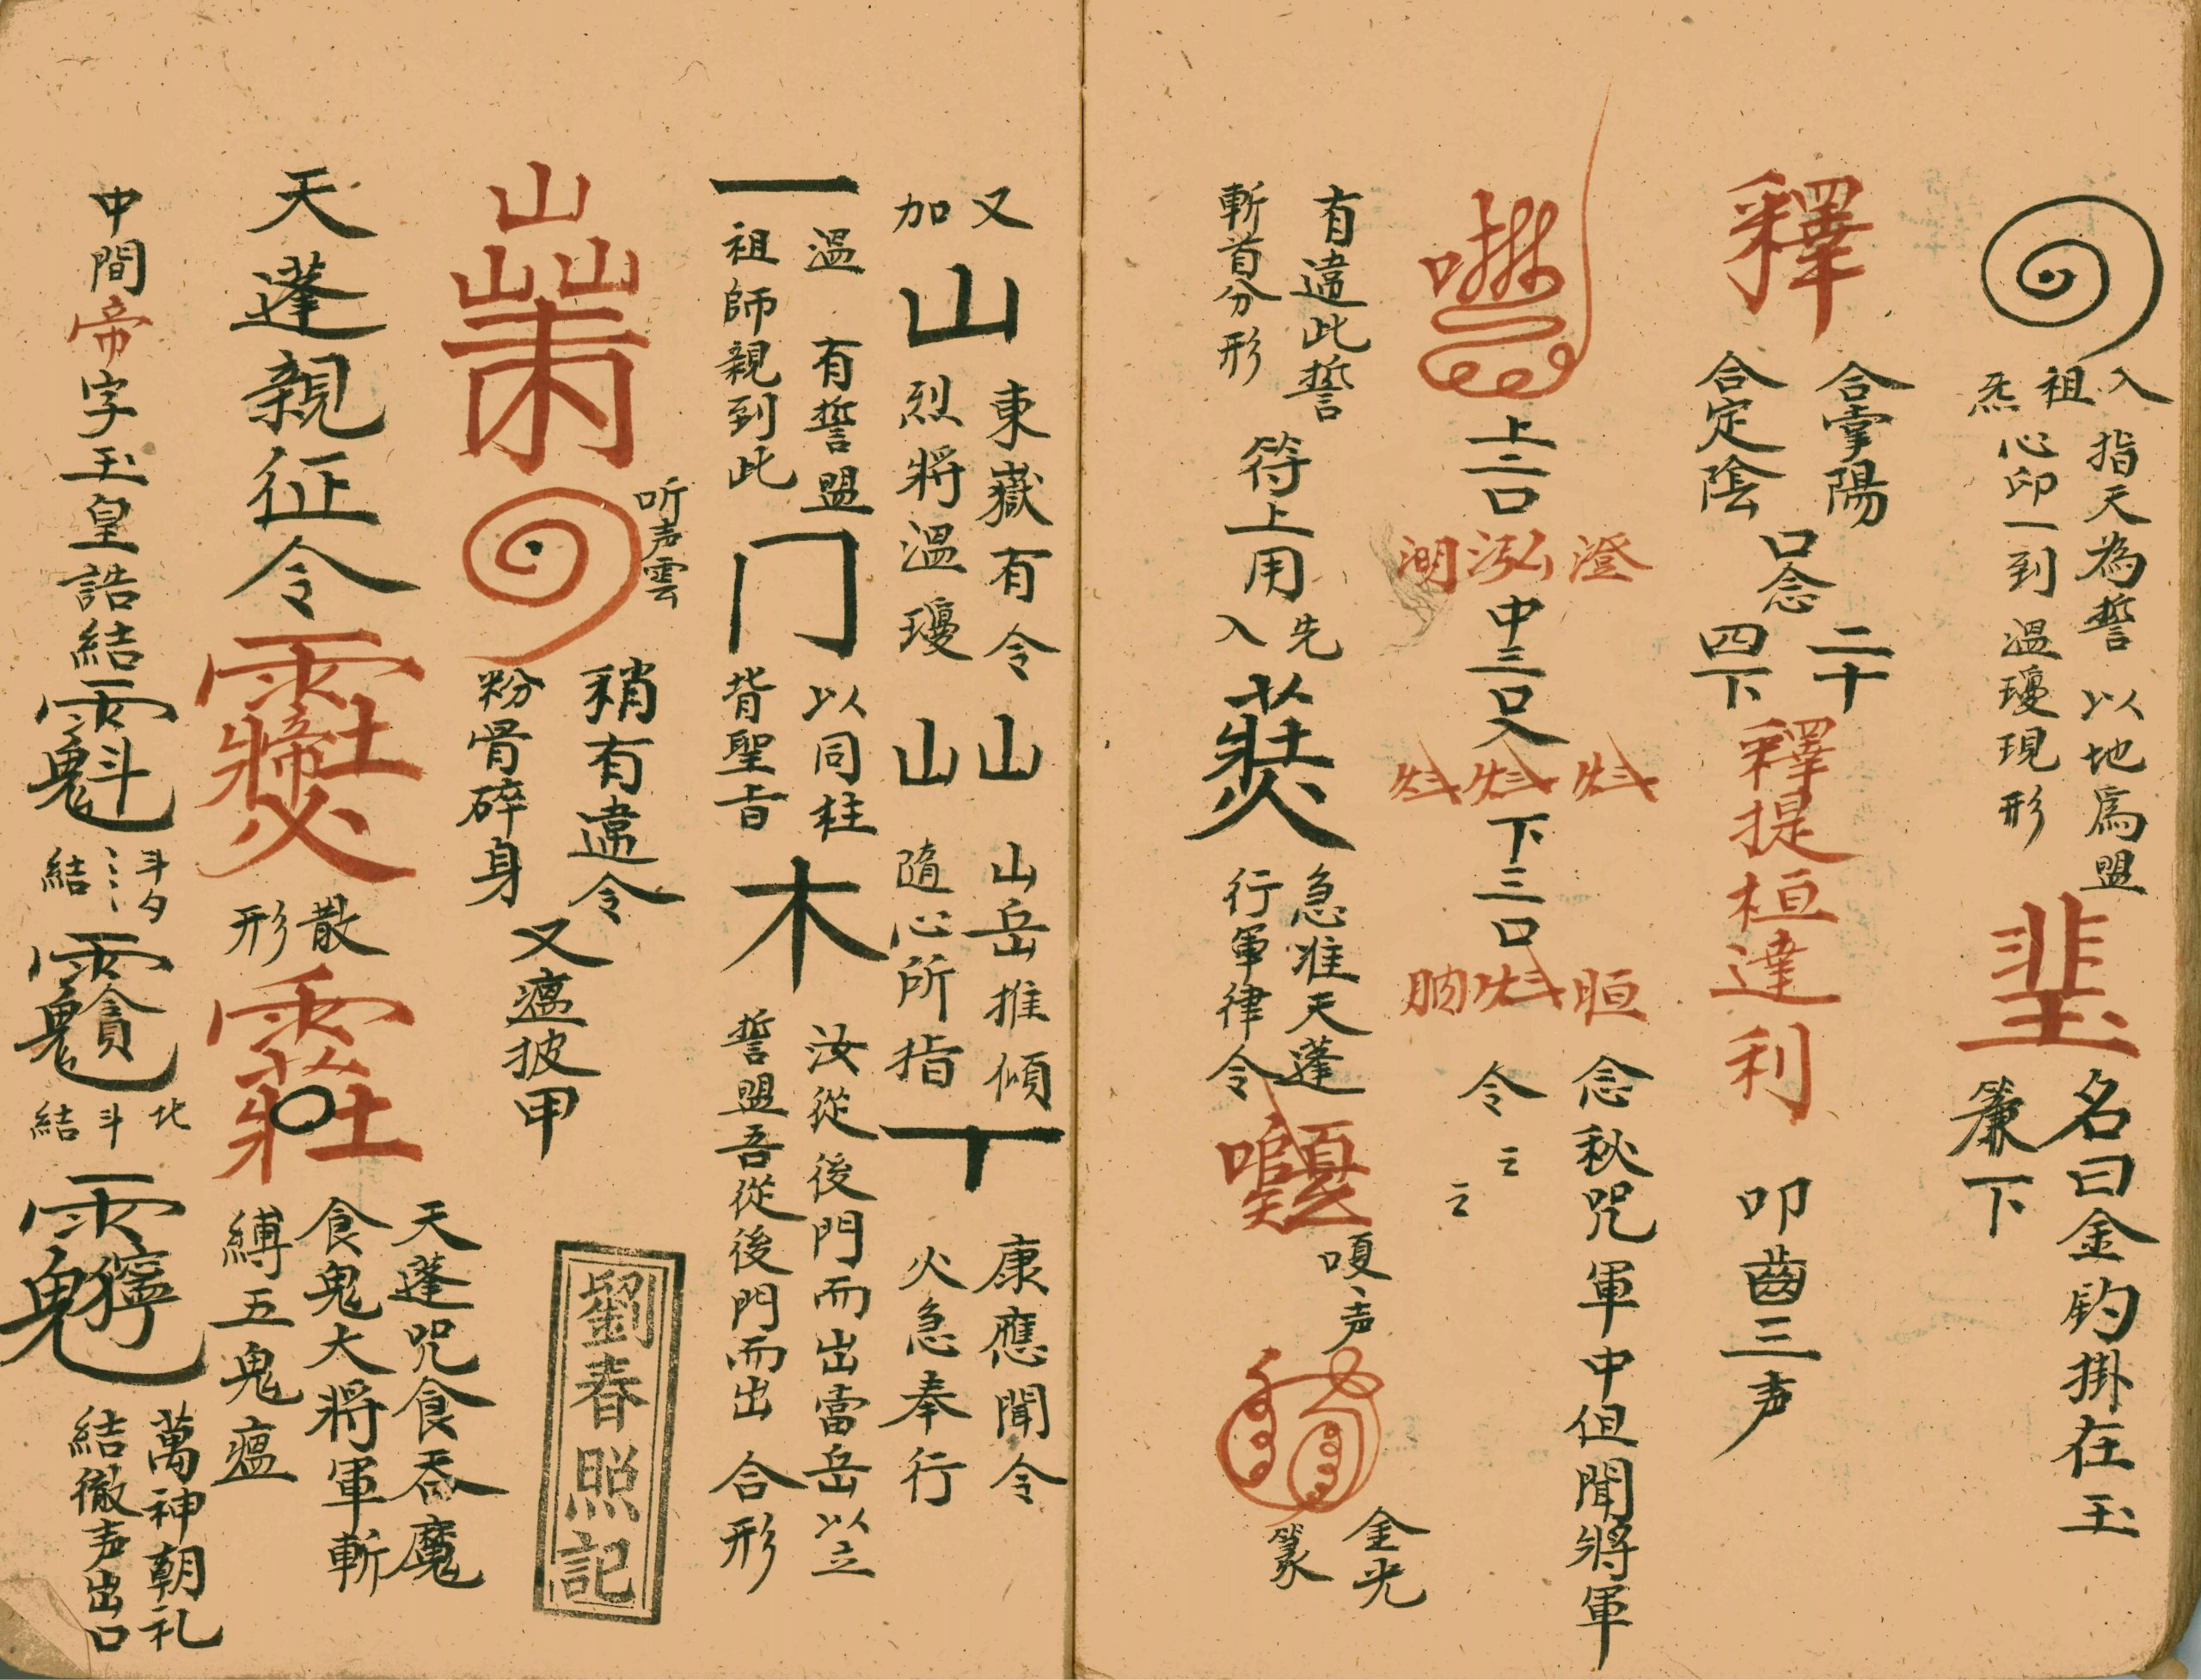 入祖炁
指天為誓 以地為盟
心印一到 溫瓊現形
名曰金鈎掛在玉
簾下
釋
合掌陽
合定陰
口念
二十
四下
釋提桓達利
叩齒三声
上三口
澄泓湖
中三口入
下三口
念秘咒軍中但聞將軍
令
有違此誓
斬首分形
符上用
先
入
急准天蓬
行軍律令
嗄声
金光
篆
又
加
山
東嶽有令
烈將溫瓊
山山
山岳推傾
隨心所指
丁
康應聞令
火急奉行
一
溫 有誓盟
祖師親到此
门
以同柱
背聖旨
木
汝從後門而出雷岳以立
誓盟吾從後門而出 合形
山
山山
听声雲
稍有違令
粉骨碎身
又瘟披甲
劉春照記
天蓬親征令
散
形
天蓬咒食吞魔
食鬼大將軍斬
縛五鬼瘟
中間帝字玉皇誥結
結
北斗結
萬神朝礼
結徹声出口